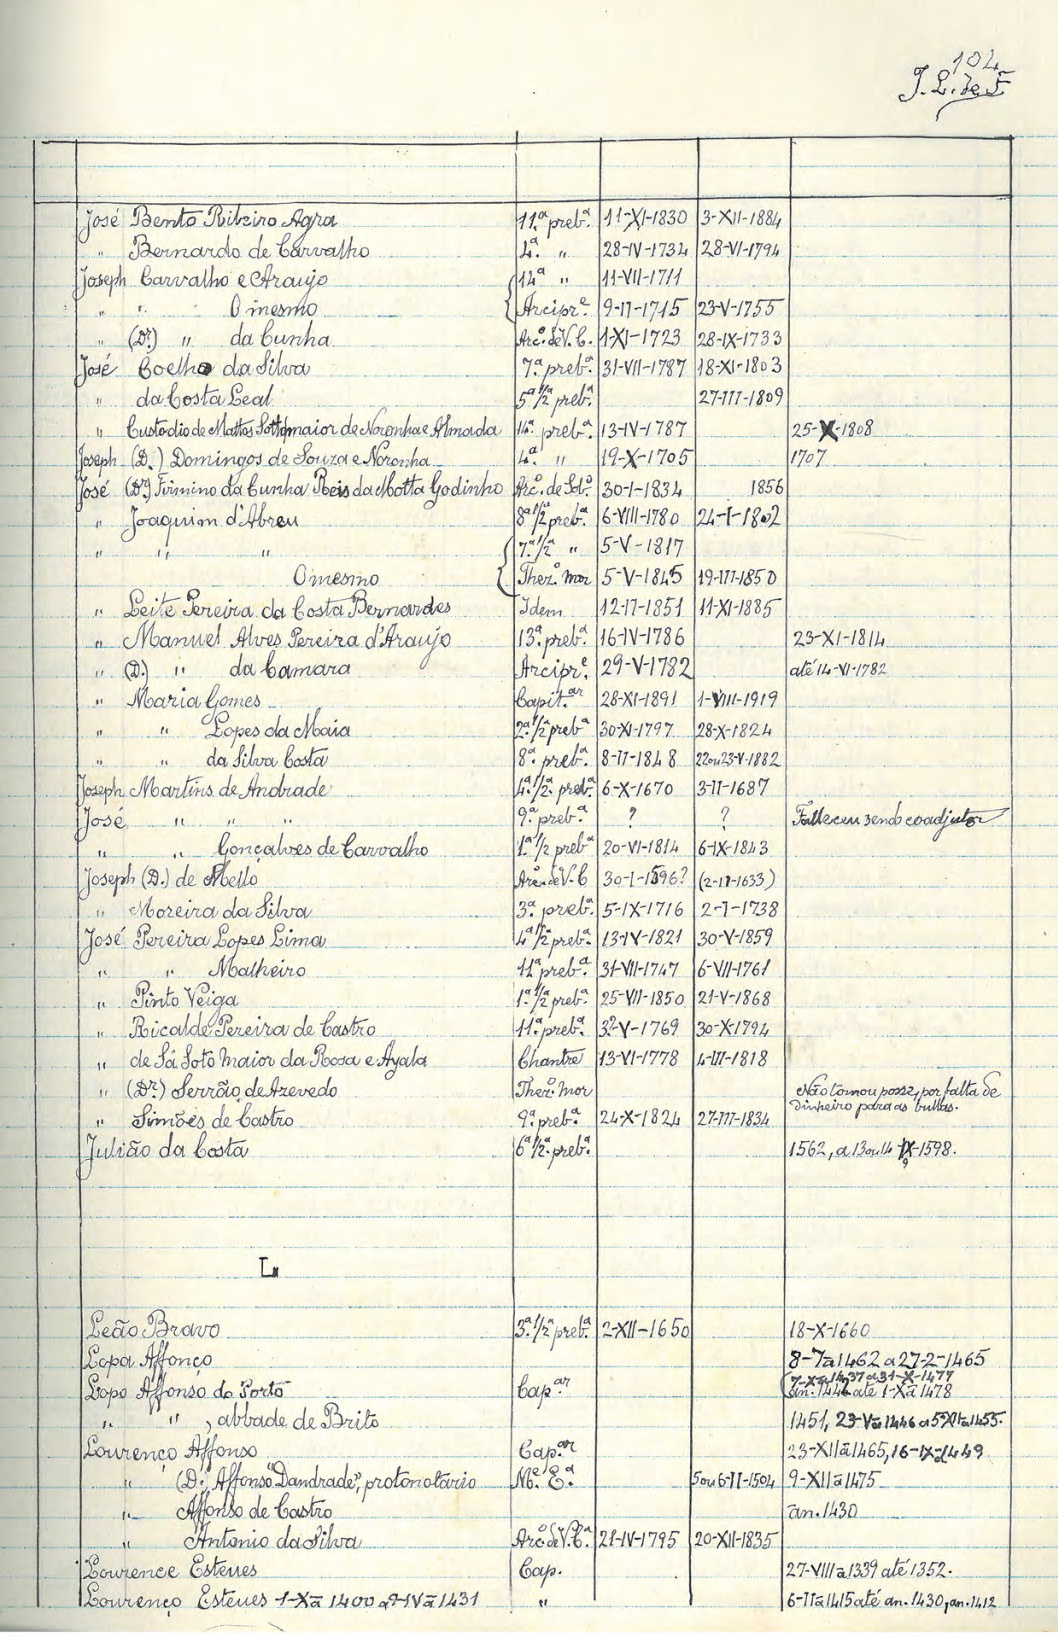 104
J. L. de F.
José Bento Ribeiro Agra 11ª prebª. 11-XI-1830 3-XII-1884
" Bernardo de Carvalho 4ª. " 28-IV-1734 28-VI-1794
Joseph Carvalho e Araujo 14ª " 11-VII-1711
" " O mesmo Arciprᵉ. 9-II-1715 23-V-1755
" (Dr.) " da Cunha Arcº. de V. C. 1-XI-1723 28-IX-1733
José Coelho da Silva 7ª prebª. 31-VII-1787 18-XI-1803
" da Costa Leal 5ª ½ prebª. 27-III-1809
" Custodio de Mattos Sottomaior de Noronha e Almada 14ª. prebª. 13-IV-1787 25-X-1808
Joseph (D.) Domingos de Souza e Noronha 4ª. " 19-X-1705 1707
José (Dr.) Firmino da Cunha Reis da Motta Godinho Arcº. de Solº. 30-I-1834 1856
" Joaquim d'Abreu 8ª ½ prebª. 6-VIII-1780 24-I-1802
" " " 7ª. ½ " 5-V-1817
O mesmo Thezº. mor 5-V-1845 19-III-1850
" Leite Pereira da Costa Bernardes Idem 12-II-1851 11-XI-1885
" Manuel Alves Pereira d'Araujo 13ª. prebª. 16-IV-1786 23-XI-1814
" (D.) " da Camara Arciprᵉ. 29-V-1782 até 14-VI-1782
" Maria Gomes Capit.ᵃʳ 28-XI-1891 1-VIII-1919
" " Lopes da Maia 2ª. ½ prebª 30-XI-1797 28-X-1824
" " da Silva Costa 8ª. prebª. 8-II-1848 22 ou 23-V-1882
Joseph Martins de Andrade 4ª. ½. prebª. 6-X-1670 3-II-1687
José " " " 9ª. prebª. ? ? Falleceu sendo coadjutor
" " Gonçalves de Carvalho 1ª. ½ prebª. 20-VI-1814 6-IX-1843
Joseph (D.) de Mello Arcº. de V. C 30-I-1596? (2-II-1633)
" Moreira da Silva 3ª. prebª. 5-IX-1716 2-I-1738
José Pereira Lopes Lima 4ª ½ prebª. 13-IV-1821 30-V-1859
" " Malheiro 11ª prebª. 31-VII-1747 6-VII-1761
" Pinto Veiga 1ª. ½ prebª. 25-VII-1850 21-V-1868
" Ricalde Pereira de Castro 11ª. prebª. 3?-V-1769 30-X-1794
" de Sá Soto Maior da Rosa e Ayala Chantre 13-VI-1778 4-III-1818
" (Dr.) Serrão de Azevedo Thezº. Mor Não tomou posse, por falta de
dinheiro para as bullas.
" Simões de Castro 9ª. prebª. 24-X-1824 27-III-1834
Julião da Costa 6ª ½. prebª. 1562, a 13 ou 14-IX-1598.
L
Leão Bravo 3ª. ½ª prebª 2-XII-1650 18-X-1660
Lopa Affonço 8-7ª 1462 a 27-2-1465
Lopo Affonso do Porto Cap.ᵃʳ an. 1442 até 1-Xª 1478
" " , abbade de Brito 1451, 23-Vª 1446 a 5-XIª 1455.
Lourenço Affonso Cap.ᵃʳ 23-XIIª 1465, 16-IXª 1449
" (D.) Affonso "Dandrade", protonotário Mᵉ. Eª. 5 ou 6-II-1504 9-XIIª 1475
" Affonso de Castro an. 1430
" Antonio da Silva Arcº. de V. Cª. 21-IV-1795 20-XII-1835
Lourence Esteues Cap. 27-VIIIª 1339 até 1352.
Lourenço Esteues 1-Xª 1400 a 9-IVª 1431 " 6-IIª 1415 até an. 1430, an. 1412